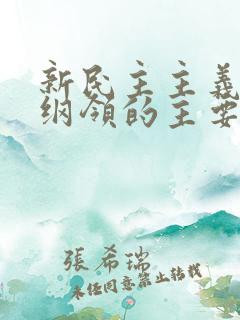 新民主主義
纲領的主要
張希瑞
未经同意禁止转载